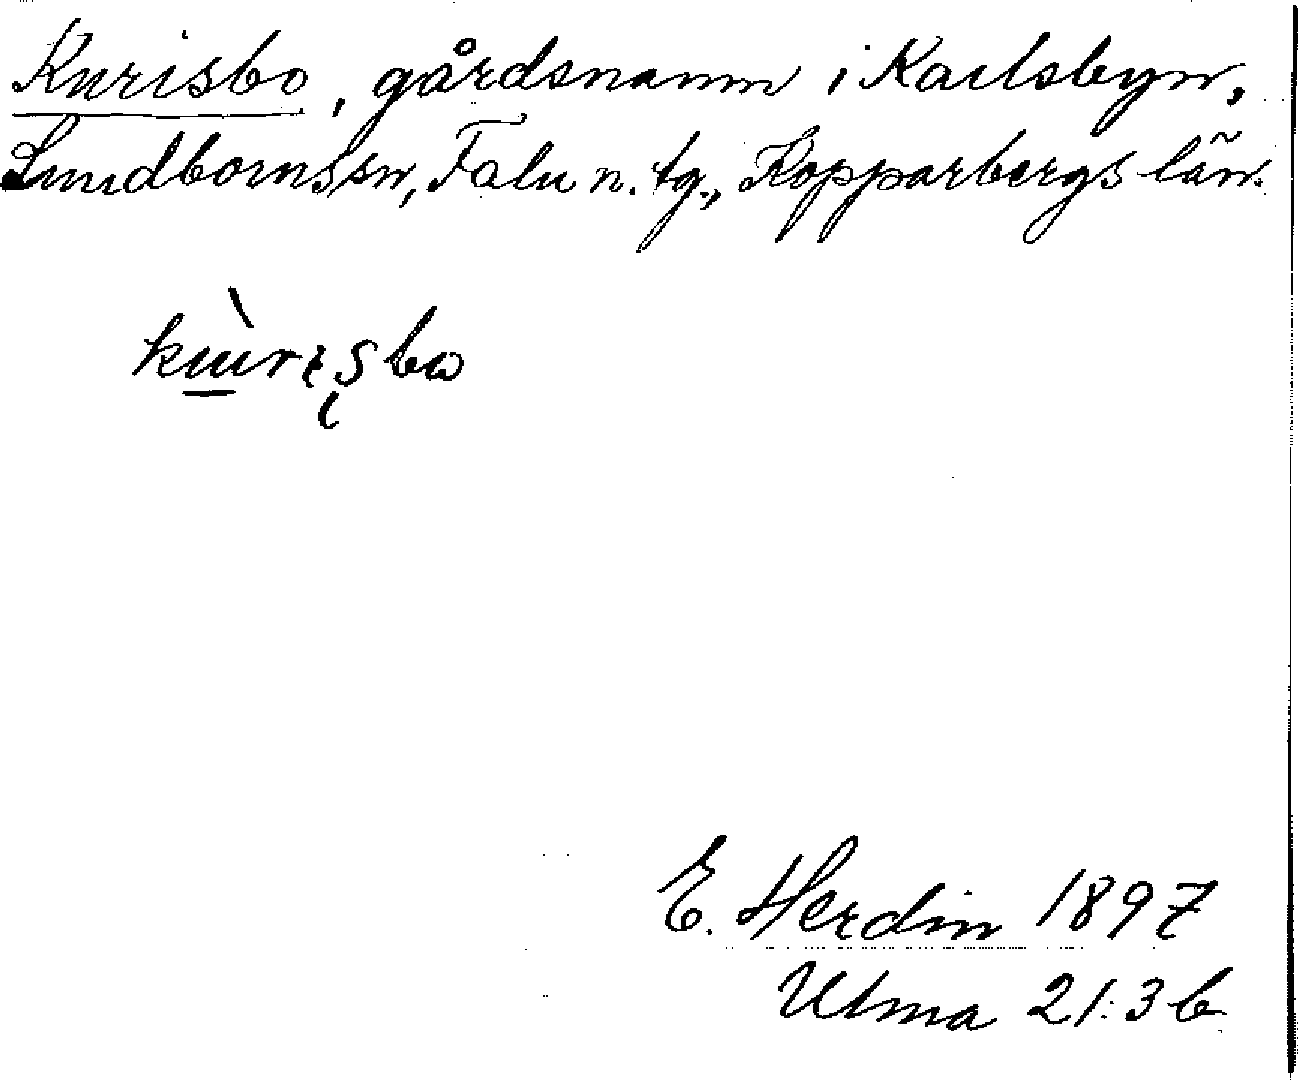 Kurisbo, gårdsnamn i Karlsbyn,
Sundbornssn, Falu n. tg., Kopparbergs län.
E. Herdin 1897
Ulma 21:3 b